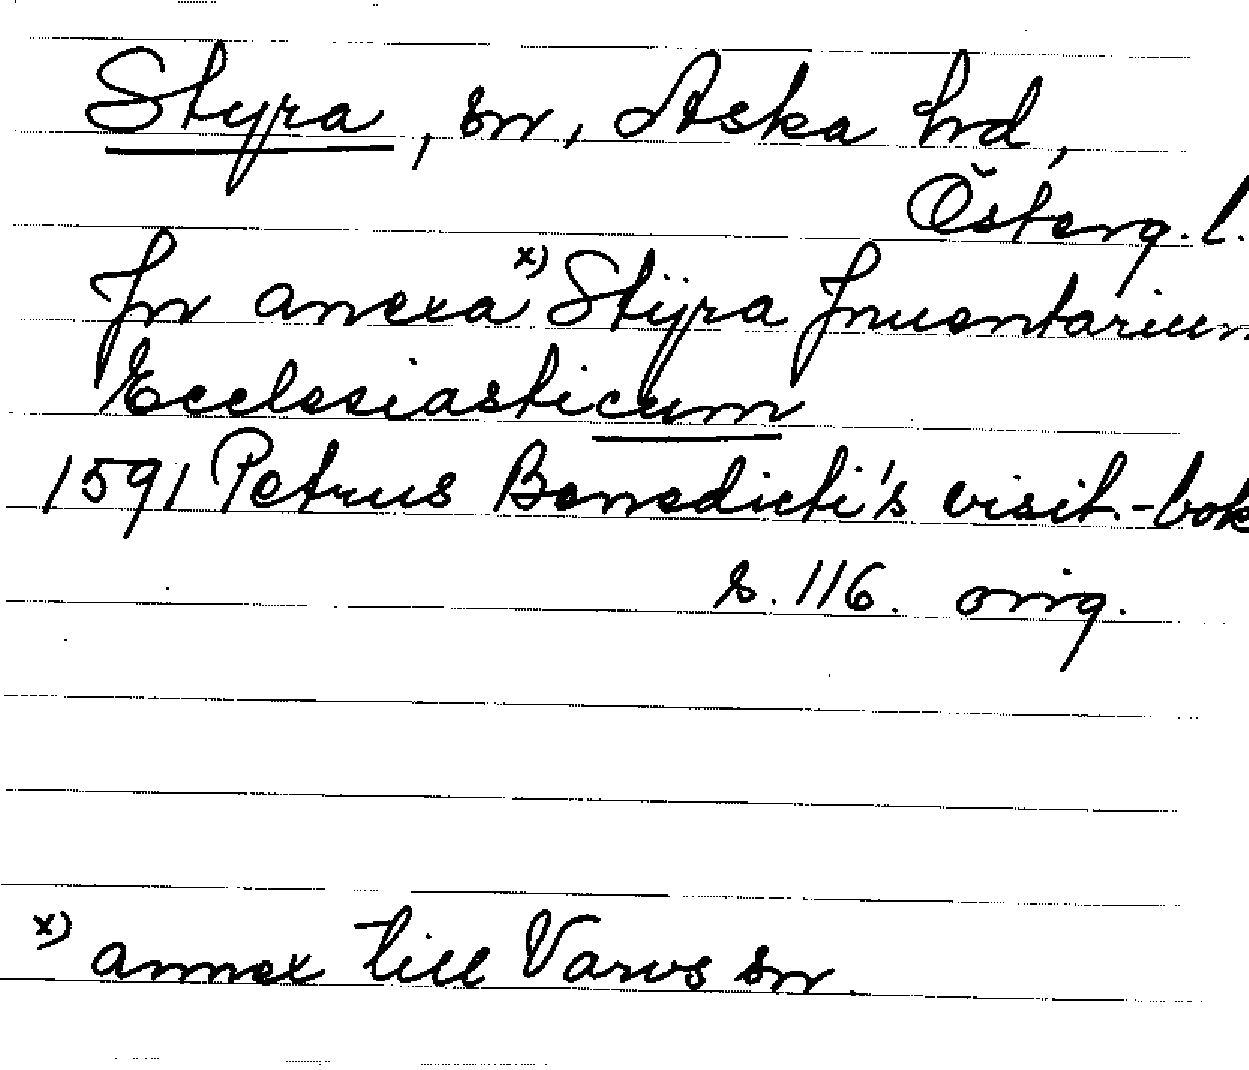 Styra, sn, Aska hd,
Österg. l.
In anexa x) Stÿra Inuentarium
Ecclesiasticum
1591 Petrus Benedicti's visit.-bok
s. 116. orig.
x) annex till Varvs sn.